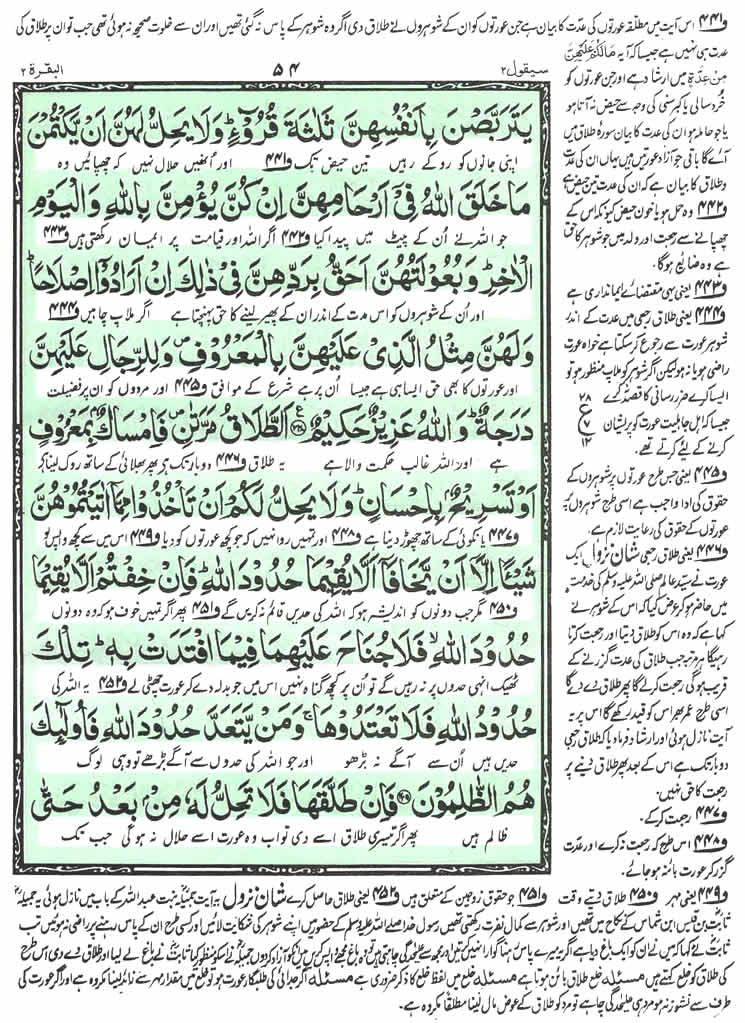 و۴۴۱ اس آیت میں مطلقہ عورتوں کی عدّت کا بیان ہے جن عورتوں کو ان کے شوہروں نے طلاق دی اگر وہ شوہر کے پاس نہ گئی تھیں اور ان سے خلوت صحیحہ نہ ہوئی تھی جب تو ان پر طلاق کی
عدت ہی نہیں ہے جیسا کہ آیہ مَالَکُمْ عَلَیْھِنَّ
مِنْ عِدَّۃٍ میں ارشاد ہے اور جن عورتوں کو
خُرد سالی یا کبر سنی کی وجہ سے حیض نہ آتا ہو
یا جو حاملہ ہو ان کی عدت کا بیان سورۂ طلاق میں
آئے گا باقی جو آزاد عورتیں ہیں یہاں ان کی عدّت
و طلاق کا بیان ہے کہ ان کی عدت تین حیض ہے
و۴۴۲ وہ حمل ہو یا خون حیض کیونکہ اس کے
چھپانے سے رجعت اور ولد میں جو شوہر کا حق
ہے وہ ضائع ہوگا۔
و۴۴۳ یعنی یہی مقتضائے ایمانداری ہے
و۴۴۴ یعنی طلاق رجعی میں عدت کے اندر
شوہر عورت سے رجوع کر سکتا ہے خواہ عورت
راضی ہو یا نہ ہو لیکن اگر شوہر کو ملاپ منظور ہو تو
ایسا کرے ضرر رسانی کا قصد نہ کرے
جیسا کہ اہل جاہلیت عورت کو پریشان
کرنے کے لئے کرتے تھے۔
و۴۴۵ یعنی جس طرح عورتوں پر شوہروں کے
حقوق کی ادا واجب ہے اسی طرح شوہروں پر
عورتوں کے حقوق کی رعایت لازم ہے۔
و۴۴۶ یعنی طلاق رجعی شان نزول ایک
عورت نے سید عالم صلی اللہ علیہ وسلم کی خدمت
میں حاضر ہو کر عرض کیا کہ اس کے شوہر نے
کہا ہے کہ وہ اس کو طلاق دیتا اور رجعت کرتا
رہیگا ہر مرتبہ جب طلاق کی عدت گزرنے کے
قریب ہوگی رجعت کرلے گا پھر طلاق دے دے گا
اسی طرح عمر بھر اس کو قید رکھے گا اس پر یہ
آیت نازل ہوئی اور ارشاد فرما دیا کہ طلاق رجعی
دوبار تک ہے اس کے بعد پھر طلاق دینے پر
رجعت کا حق نہیں۔
و۴۴۷ رجعت کرکے۔
و۴۴۸ اس طرح کہ رجعت نہ کرے اور عدّت
گزر کر عورت بائنہ ہو جائے۔
۲۸
ع
۷
۱۲
سیقول ۲ ۵۴ البقرۃ ۲
یَتَرَبَّصْنَ بِاَنْفُسِهِنَّ ثَلٰثَةَ قُرُوْٓءٍ ؕ وَلَا یَحِلُّ لَهُنَّ اَنْ یَّكْتُمْنَ
اپنی جانوں کو روکے رہیں تین حیض تک و۴۴۱ اور اُنھیں حلال نہیں کہ چھپائیں وہ
مَا خَلَقَ اللّٰهُ فِیْۤ اَرْحَامِهِنَّ اِنْ كُنَّ یُؤْمِنَّ بِاللّٰهِ وَالْیَوْمِ
جو اللہ نے اُن کے پیٹ میں پیدا کیا و۴۴۲ اگر اللہ اور قیامت پر ایمان رکھتی ہیں و۴۴۳
الْاٰخِرِ ؕ وَبُعُوْلَتُهُنَّ اَحَقُّ بِرَدِّهِنَّ فِیْ ذٰلِكَ اِنْ اَرَادُوْۤا اِصْلَاحًا ؕ
اور اُن کے شوہروں کو اس مدت کے اندر ان کے پھیر لینے کا حق پہنچتا ہے اگر ملاپ چاہیں و۴۴۴
وَلَهُنَّ مِثْلُ الَّذِیْ عَلَیْهِنَّ بِالْمَعْرُوْفِ ۪ وَلِلرِّجَالِ عَلَیْهِنَّ
اور عورتوں کا بھی حق ایسا ہی ہے جیسا اُن پر ہے شرع کے موافق و۴۴۵ اور مردوں کو ان پر فضیلت
دَرَجَةٌ ؕ وَاللّٰهُ عَزِیْزٌ حَكِیْمٌ ﴿۲۲۸﴾ اَلطَّلَاقُ مَرَّتٰنِ ۪ فَاِمْسَاكٌۢ بِمَعْرُوْفٍ
ہے اور اللہ غالب حکمت والا ہے یہ طلاق و۴۴۶ دوبار تک ہے پھر بھلائی کے ساتھ روک لینا ہے
اَوْ تَسْرِیْحٌۢ بِاِحْسَانٍ ؕ وَلَا یَحِلُّ لَكُمْ اَنْ تَاْخُذُوْا مِمَّاۤ اٰتَیْتُمُوْهُنَّ
و۴۴۷ یا نکوئی کے ساتھ چھوڑ دینا ہے و۴۴۸ اور تمہیں روا نہیں کہ جو کچھ عورتوں کو دیا و۴۴۹ اس میں سے کچھ واپس لو
شَیْـًٔا اِلَّاۤ اَنْ یَّخَافَاۤ اَلَّا یُقِیْمَا حُدُوْدَ اللّٰهِ ؕ فَاِنْ خِفْتُمْ اَلَّا یُقِیْمَا
و۴۵۰ مگر جب دونوں کو اندیشہ ہو کہ اللہ کی حدیں قائم نہ کریں گے و۴۵۱ پھر اگر تمہیں خوف ہو کہ وہ دونوں
حُدُوْدَ اللّٰهِ ۙ فَلَا جُنَاحَ عَلَیْهِمَا فِیْمَا افْتَدَتْ بِهٖ ؕ تِلْكَ
ٹھیک انہی حدوں پر نہ رہیں گے تو اُن پر کچھ گناہ نہیں اس میں جو بدلہ دے کر عورت چھٹی لے و۴۵۲ یہ اللہ کی
حُدُوْدُ اللّٰهِ فَلَا تَعْتَدُوْهَا ۚ وَمَنْ یَّتَعَدَّ حُدُوْدَ اللّٰهِ فَاُولٰٓىِٕكَ
حدیں ہیں اُن سے آگے نہ بڑھو اور جو اللہ کی حدوں سے آگے بڑھے تو وہی لوگ
هُمُ الظّٰلِمُوْنَ ﴿۲۲۹﴾ فَاِنْ طَلَّقَهَا فَلَا تَحِلُّ لَهٗ مِنْۢ بَعْدُ حَتّٰی
ظالم ہیں پھر اگر تیسری طلاق اسے دی تو اب وہ عورت اسے حلال نہ ہو گی جب تک
و۴۴۹ یعنی مہر و۴۵۰ طلاق دیتے وقت و۴۵۱ جو حقوق زوجین کے متعلق ہیں و۴۵۲ یعنی طلاق حاصل کرے شان نزول یہ آیت جمیلہ بنت عبداللہ کے باب میں نازل ہوئی یہ جمیلہ
ثابت بن قیس ابن شماس کے نکاح میں تھیں اور شوہر سے کمال نفرت رکھتی تھیں رسول خدا صلے اللہ علیہ وسلم کے حضور میں اپنے شوہر کی شکایت لائیں اور کسی طرح ان کے پاس رہنے پر راضی نہ ہوئیں تب
ثابت نے کہا کہ میں نے ان کو ایک باغ دیا ہے اگر یہ میرے پاس رہنا گوارا نہیں کرتیں اور مجھ سے علیحدگی چاہتی ہیں تو وہ باغ مجھے واپس کریں میں ان کو آزاد کردوں جمیلہ نے اس کو منظور کیا ثابت نے باغ لے لیا اور طلاق دے دی اس طرح
کی طلاق کو خلع کہتے ہیں مسئلہ خلع طلاق بائن ہوتا ہے مسئلہ خلع میں لفظ خلع کا ذکر ضروری ہے مسئلہ اگر جدائی کی طلبگار عورت ہو تو خلع میں مقدار مہر سے زائد لینا مکروہ ہے اور اگر عورت کی
طرف سے نشوز نہ ہو مرد ہی علیحدگی چاہے تو مرد کو طلاق کے عوض مال لینا مطلقاً مکروہ ہے۔